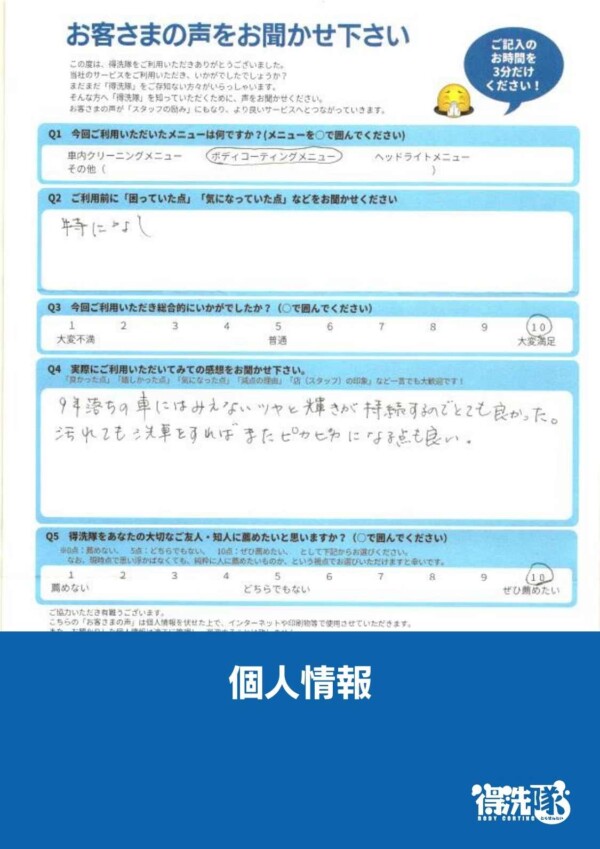 お客さまの声をお聞かせ下さい
ご記入の
お時間を
3分だけ
ください！
この度は、得洗隊をご利用いただきありがとうございました。
当社のサービスをご利用いただき、いかがでしたでしょうか？
まだまだ「得洗隊」をご存知ない方々がいらっしゃいます。
そんな方へ「得洗隊」を知っていただくために、声をお聞かせください。
お客さまの声が「スタッフの励み」にもなり、より良いサービスへとつながっていきます。
Q1 今回ご利用いただいたメニューは何ですか？(メニューを○で囲んでください)
車内クリーニングメニュー ボディコーティングメニュー ヘッドライトメニュー
その他（ ）
Q2 ご利用前に「困っていた点」「気になっていた点」などをお聞かせください
特になし
Q3 今回ご利用いただき総合的にいかがでしたか？（○で囲んでください）
1 2 3 4 5 6 7 8 9 10
大変不満 普通 大変満足
Q4 実際にご利用いただいてみての感想をお聞かせ下さい。
「良かった点」「嬉しかった点」「気になった点」「減点の理由」「店（スタッフ）の印象」など一言でも大歓迎です！
9年落ちの車にはみえないツヤと輝きが持続するのでとても良かった。
汚れても洗車をすればまたピカピカになる点も良い。
Q5 得洗隊をあなたの大切なご友人・知人に薦めたいと思いますか？（○で囲んでください）
※0点：薦めない、 5点：どちらでもない、 10点：ぜひ薦めたい、 として下記からお選びください。
なお、現時点で思い浮かばなくても、純粋に人に薦めたいものか、という視点でお選びいただけますと幸いです。
1 2 3 4 5 6 7 8 9 10
薦めない どちらでもない ぜひ薦めたい
ご協力いただき有難うございます。
こちらの「お客さまの声」は個人情報を伏せた上で、インターネットや印刷物等で使用させていただきます。
個人情報
得洗隊
BODY COATING